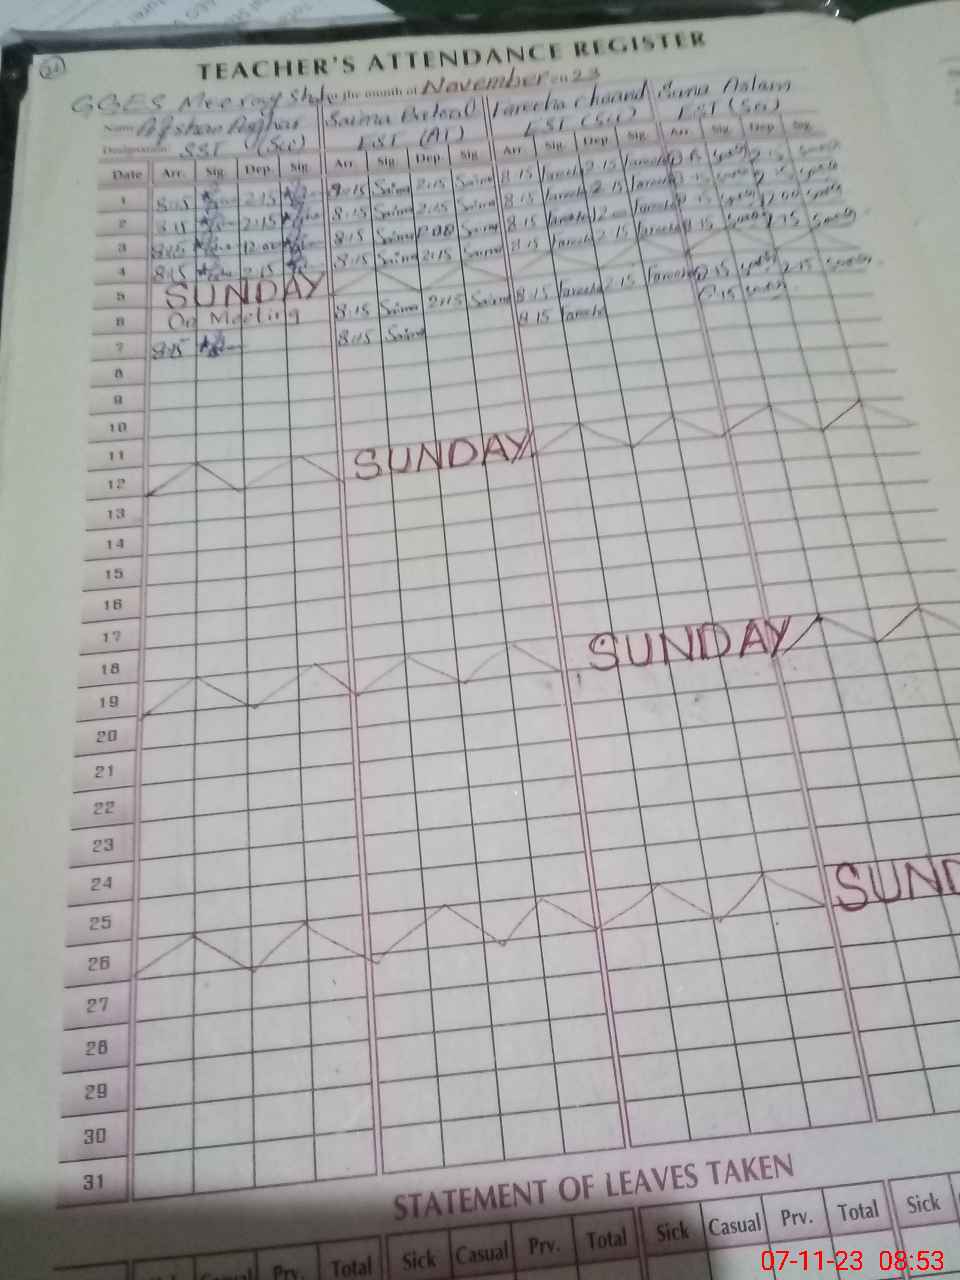 24
TEACHER'S ATTENDANCE REGISTER
GGES State for the month of November 2023
Name Afshan Asghar Saima Batool Fareeha Chaand Aslam
Designation SST (Sci) EST (AT) EST (Sci) EST (Sci)
Date Arr. Sig. Dep. Sig. Arr. Sig. Dep. Sig. Arr. Sig. Dep. Sig. Arr. Sig. Dep. Sig.
1 8:15 2:15 8:15 Saima 2:15 Saima 8:15 Fareeha 2:15 Fareeha 2:15
2 8:15 2:15 8:15 Saima 2:15 Saima 8:15 Fareeha 2:15 Fareeha
3 8:15 12:00 8:15 Saima Saima 8:15 Fareeha 12:00 Fareeha 12:00
4 8:15 2:15 8:15 Saima 2:15 Saima 8:15 Fareeha 2:15 Fareeha 8:15 2:15
5 SUNDAY
6 On Meeting 8:15 Saima 2:15 Saima 8:15 Fareeha 2:15 Fareeha 8:15 2:15
7 8:15 8:15 Saima 8:15 Fareeha 8:15
8
9
10
11
12 SUNDAY
13
14
15
16
17
18
19 SUNDAY
20
21
22
23
24
25
26 SUND
27
28
29
30
31
STATEMENT OF LEAVES TAKEN
Sick Casual Prv. Total Sick Casual Prv. Total Sick Casual Prv. Total Sick
07-11-23 08:53